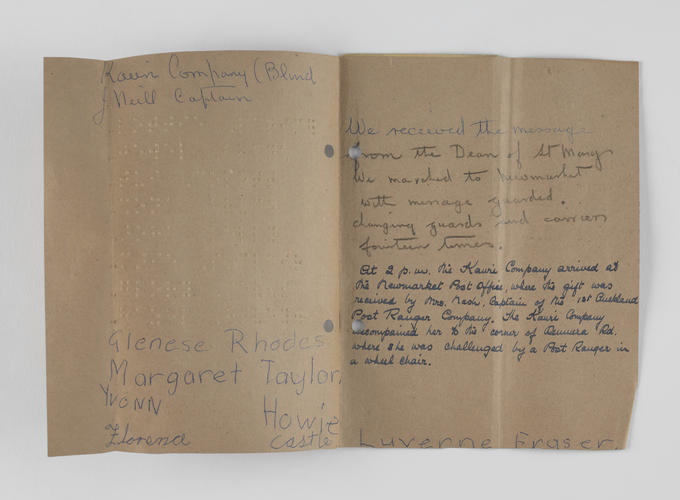 Kauri Company (Blind
J Neill Captain
Glenese Rhodes
Margaret Taylor,
YVONN Howie
Florence Castle
We received the message
from the Dean of St Marys
We marched to Newmarket
with message guarded.
changing guards and carriers
fourteen times.
At 2 p.m. the Kauri Company arrived at
the Newmarket Post Office, where the gift was
received by Mrs. Nash, Captain of the 1st Auckland
Post Ranger Company. The Kauri Company
accompanied her to the corner of Remuera Rd.
where she was challenged by a Post Ranger in
a wheel chair.
Luverne Fraser.